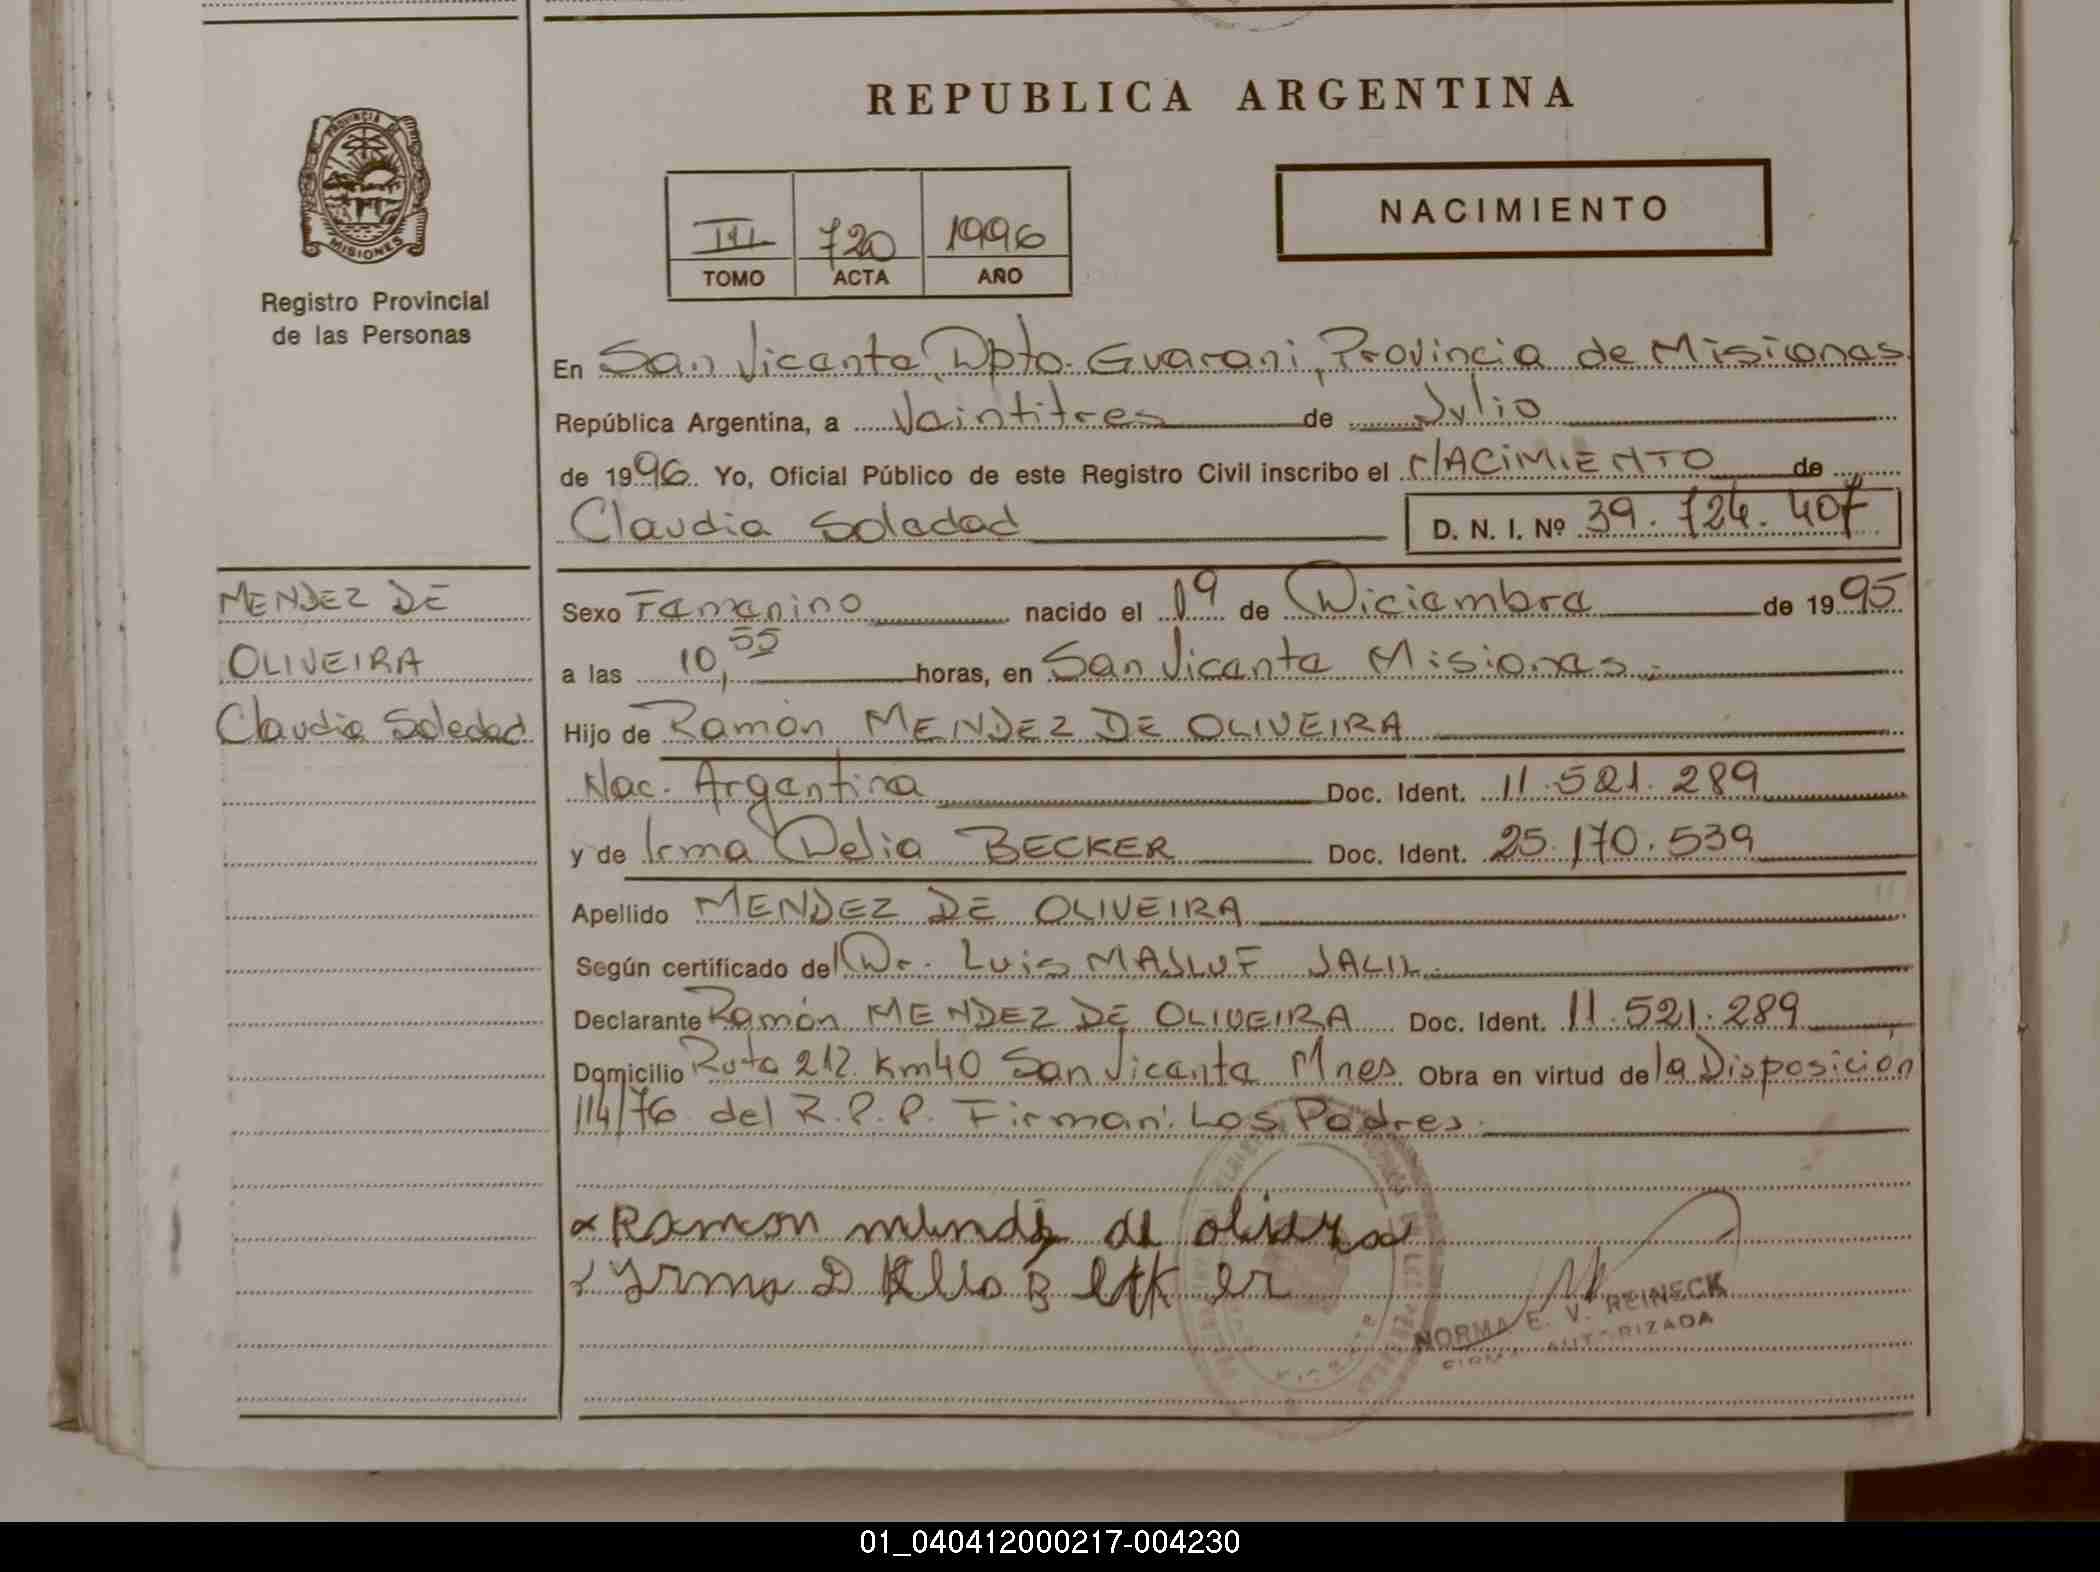 REPUBLICA ARGENTINA
PROVINCIA DE
MISIONES
Registro Provincial
de las Personas
III 720 1996
TOMO ACTA AÑO
NACIMIENTO
En San Vicente, Dpto. Guarani, Provincia de Misiones
República Argentina, a Veintitres de Julio
de 1996. Yo, Oficial Público de este Registro Civil inscribo el NACIMIENTO de
Claudia Soledad D. N. I. Nº 39.724.407
MENDEZ DE
OLIVEIRA
Claudia Soledad
Sexo Femenino nacido el 19 de Diciembre de 1995
a las 10,55 horas, en San Vicente Misiones.-
Hijo de Ramón MENDEZ DE OLIVEIRA
Nac. Argentina Doc. Ident. 11.521.289
y de Irma Delia BECKER Doc. Ident. 25.170.539
Apellido MENDEZ DE OLIVEIRA
Según certificado del Dr. Luis MASLUF JALIL
Declarante Ramón MENDEZ DE OLIVEIRA Doc. Ident. 11.521.289
Domicilio Ruta 212 Km40 San Vicente Mnes. Obra en virtud de la Disposición
114/76 del R.P.P. Firman: Los Padres.
x Ramon mendez de oliviera
NORMA E. V. REINECK
FIRMA AUTORIZADA
01_040412000217-004230